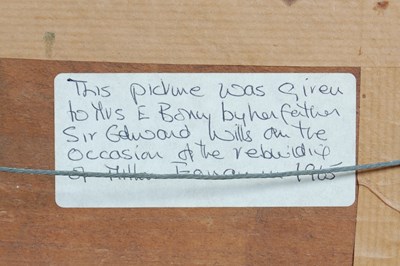 This picture was given
to Mrs E Bonny by her father
Sir Edward Wills on the
occasion of the rebuilding
of 1965